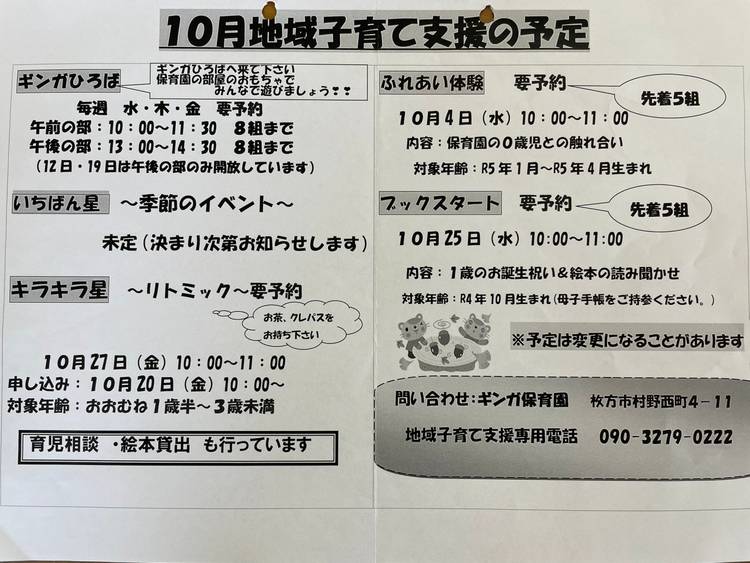 10月地域子育て支援の予定
ギンガひろば
ギンガひろばへ来て下さい
保育園の部屋のおもちゃで
みんなで遊びましょう❢❢
毎週 水・木・金 要予約
午前の部：10：00～11：30 8組まで
午後の部：13：00～14：30 8組まで
（12日・19日は午後の部のみ開放しています）
いちばん星 ～季節のイベント～
未定（決まり次第お知らせします）
キラキラ星 ～リトミック～要予約
お茶、クレパスを
お持ち下さい
10月27日（金）10：00～11：00
申し込み：10月20日（金）10：00～
対象年齢：おおむね1歳半～3歳未満
育児相談 ・絵本貸出 も行っています
ふれあい体験 要予約
先着5組
10月4日（水）10：00～11：00
内容：保育園の0歳児との触れ合い
対象年齢：R5年1月～R5年4月生まれ
ブックスタート 要予約
先着5組
10月25日（水）10:00～11:00
内容：1歳のお誕生祝い＆絵本の読み聞かせ
対象年齢：R4年10月生まれ（母子手帳をご持参ください。）
※予定は変更になることがあります
問い合わせ：ギンガ保育園 枚方市村野西町4－11
地域子育て支援専用電話 090-3279-0222